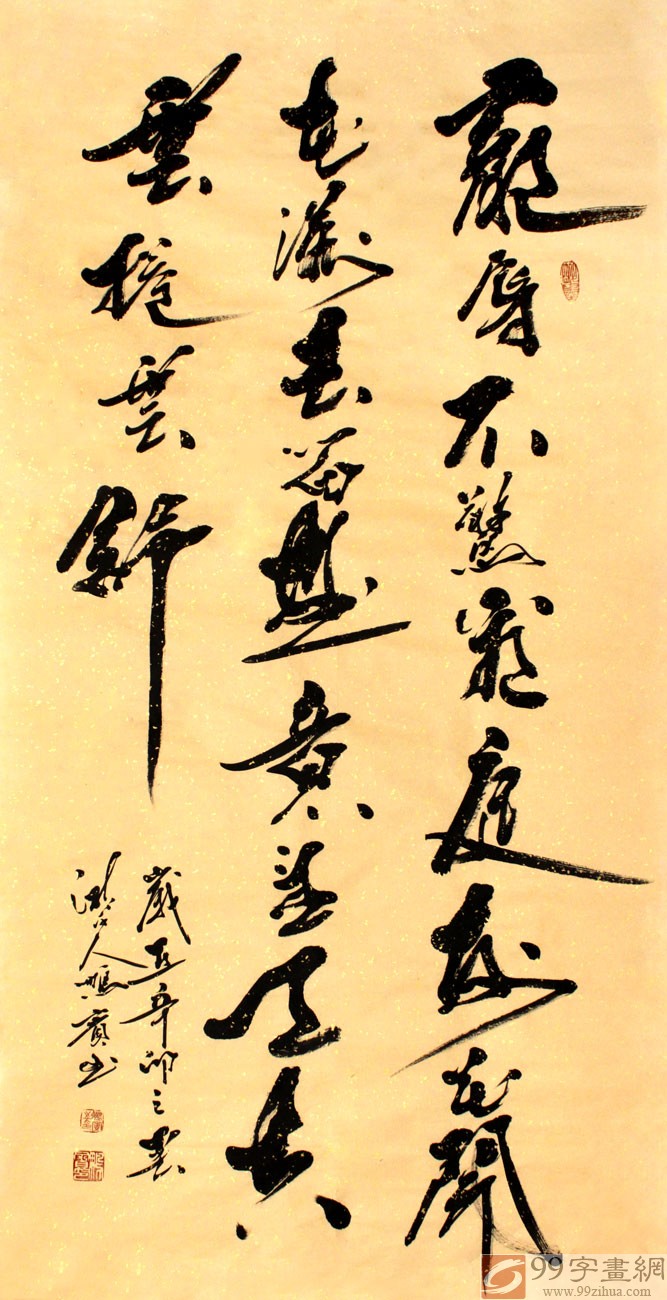 寵辱不驚庭前花開
花落去留無意望天
雲捲雲舒
歲在辛卯之春
人鳴賓書
99字畫網
www.99zihua.com